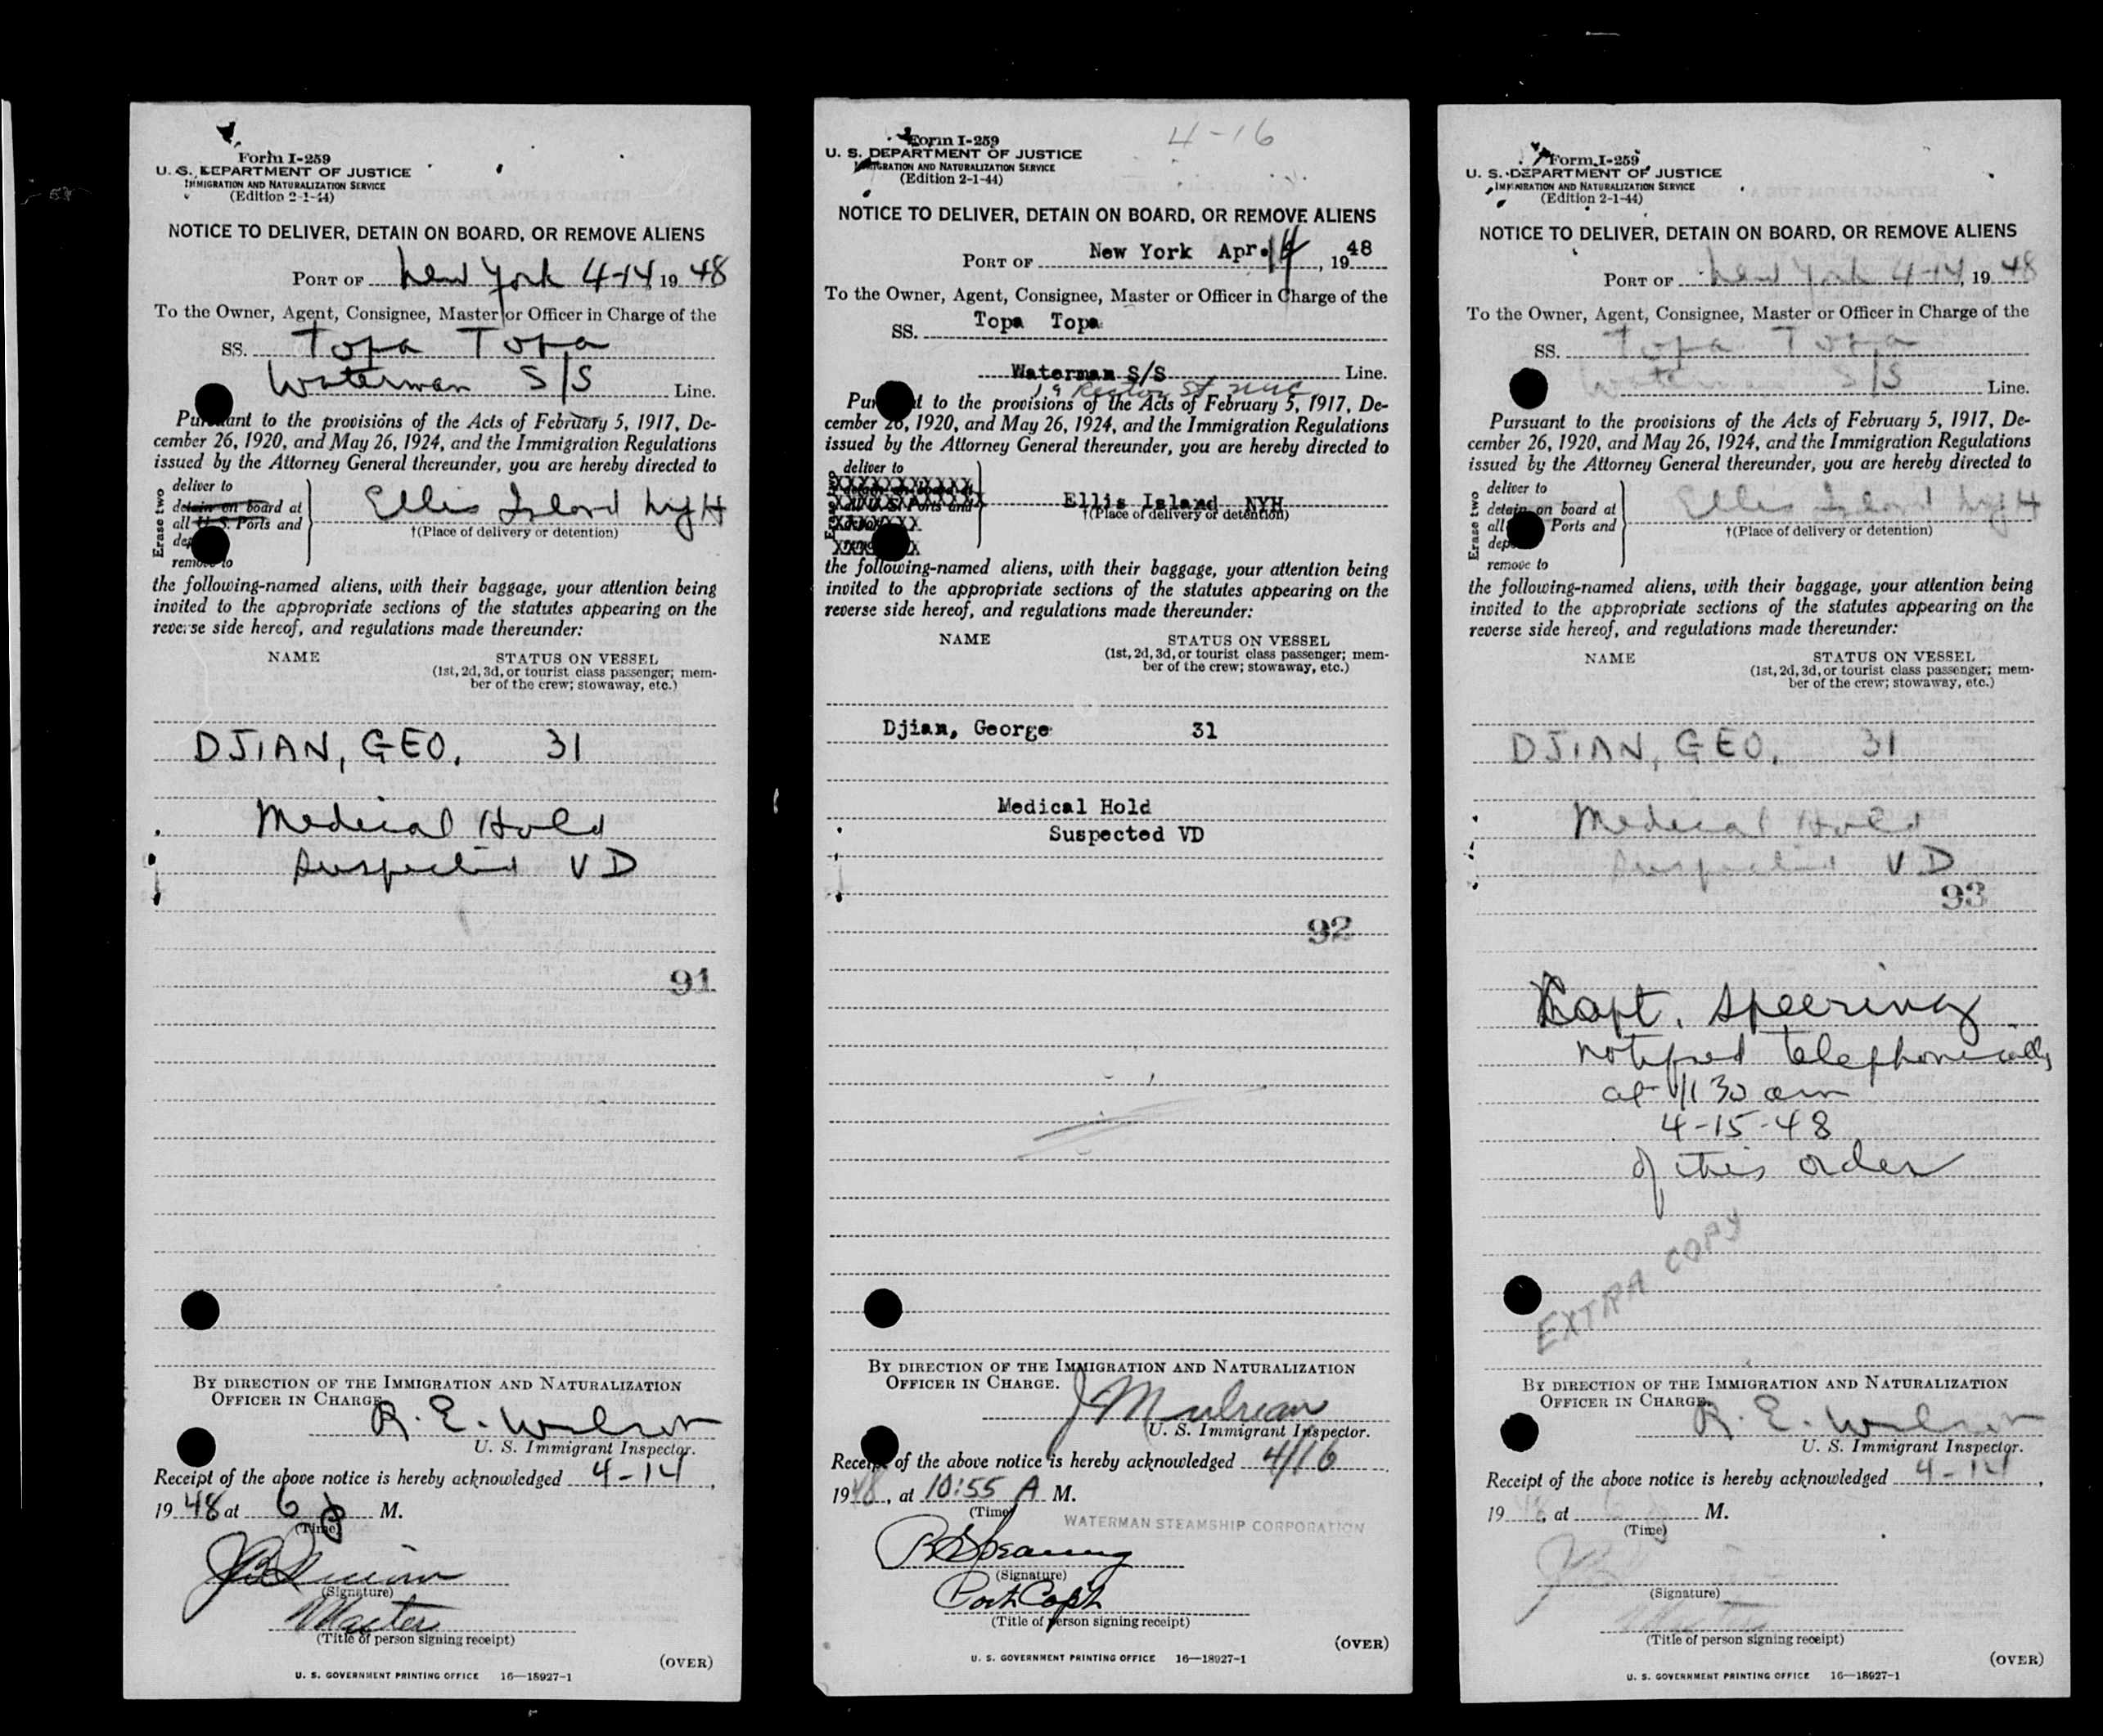 Form I-259
U. S. DEPARTMENT OF JUSTICE
IMMIGRATION AND NATURALIZATION SERVICE
(Edition 2-1-44)
NOTICE TO DELIVER, DETAIN ON BOARD, OR REMOVE ALIENS
PORT OF New York 4-14, 19 48
To the Owner, Agent, Consignee, Master or Officer in Charge of the
SS. Topa Topa
Waterman S/S Line.
Pursuant to the provisions of the Acts of February 5, 1917, De-
cember 26, 1920, and May 26, 1924, and the Immigration Regulations
issued by the Attorney General thereunder, you are hereby directed to
Erase two
deliver to
detain on board at
all U. S. Ports and
remove to
Ellis Island NYH
†(Place of delivery or detention)
the following-named aliens, with their baggage, your attention being
invited to the appropriate sections of the statutes appearing on the
reverse side hereof, and regulations made thereunder:
NAME STATUS ON VESSEL
(1st, 2d, 3d, or tourist class passenger; mem-
ber of the crew; stowaway, etc.)
DJIAN, GEO. 31
Medical Hold
Suspected VD
91
BY DIRECTION OF THE IMMIGRATION AND NATURALIZATION
OFFICER IN CHARGE.
R. E. Wilson
U. S. Immigrant Inspector.
Receipt of the above notice is hereby acknowledged 4-14,
19 48 at 6 P M.
(Time)
(Signature)
Master
(Title of person signing receipt)
(OVER)
U. S. GOVERNMENT PRINTING OFFICE 16—18927-1
4-16
Form I-259
U. S. DEPARTMENT OF JUSTICE
IMMIGRATION AND NATURALIZATION SERVICE
(Edition 2-1-44)
NOTICE TO DELIVER, DETAIN ON BOARD, OR REMOVE ALIENS
PORT OF New York Apr. 14, 19 48
To the Owner, Agent, Consignee, Master or Officer in Charge of the
SS. Topa Topa
Waterman S/S Line.
19 Rector St NYC
Pursuant to the provisions of the Acts of February 5, 1917, De-
cember 26, 1920, and May 26, 1924, and the Immigration Regulations
issued by the Attorney General thereunder, you are hereby directed to
deliver to
Ellis Island NYH
†(Place of delivery or detention)
the following-named aliens, with their baggage, your attention being
invited to the appropriate sections of the statutes appearing on the
reverse side hereof, and regulations made thereunder:
NAME STATUS ON VESSEL
(1st, 2d, 3d, or tourist class passenger; mem-
ber of the crew; stowaway, etc.)
Djian, George 31
Medical Hold
Suspected VD
92
BY DIRECTION OF THE IMMIGRATION AND NATURALIZATION
OFFICER IN CHARGE.
J Mulrean
U. S. Immigrant Inspector.
Receipt of the above notice is hereby acknowledged 4/16,
1948, at 10:55 A M.
(Time)
WATERMAN STEAMSHIP CORPORATION
(Signature)
Port Capt
(Title of person signing receipt)
(OVER)
U. S. GOVERNMENT PRINTING OFFICE 16—18927-1
Form I-259
U. S. DEPARTMENT OF JUSTICE
IMMIGRATION AND NATURALIZATION SERVICE
(Edition 2-1-44)
NOTICE TO DELIVER, DETAIN ON BOARD, OR REMOVE ALIENS
PORT OF New York 4-14, 19 48
To the Owner, Agent, Consignee, Master or Officer in Charge of the
SS. Topa Topa
Waterman S/S Line.
Pursuant to the provisions of the Acts of February 5, 1917, De-
cember 26, 1920, and May 26, 1924, and the Immigration Regulations
issued by the Attorney General thereunder, you are hereby directed to
Erase two
deliver to
detain on board at
all Ports and
remove to
Ellis Island NYH
†(Place of delivery or detention)
the following-named aliens, with their baggage, your attention being
invited to the appropriate sections of the statutes appearing on the
reverse side hereof, and regulations made thereunder:
NAME STATUS ON VESSEL
(1st, 2d, 3d, or tourist class passenger; mem-
ber of the crew; stowaway, etc.)
DJIAN, GEO. 31
Medical Hold
Suspected VD
93
Capt. Speering
notified telephonically
at 1130 am
4-15-48
of this order
EXTRA COPY
BY DIRECTION OF THE IMMIGRATION AND NATURALIZATION
OFFICER IN CHARGE.
R. E. Wilson
U. S. Immigrant Inspector.
Receipt of the above notice is hereby acknowledged 4-14,
19 48, at 6 M.
(Time)
(Signature)
Master
(Title of person signing receipt)
(OVER)
U. S. GOVERNMENT PRINTING OFFICE 16—18927-1